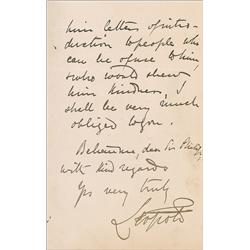 him letters of intro-
duction to people who
can be of use to him
& who would shew
him kindness, I
shall be very much
obliged to you.
Believe me, dear Sir Philip,
with kind regards
Yrs very truly
Leopold